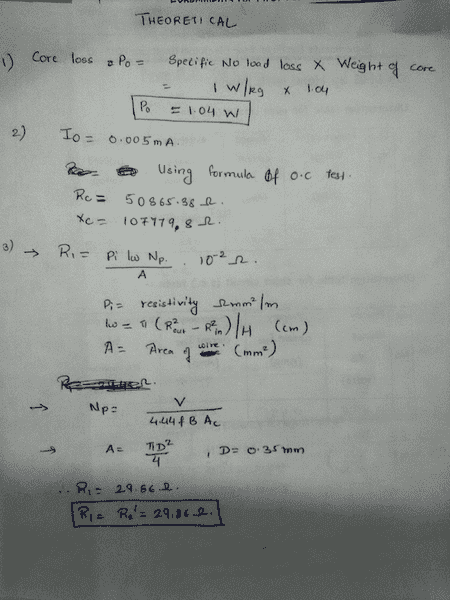 THEORETICAL
1) Core loss = Po = Specific No load loss X Weight of core
= 1 W/kg x 1.04
Po = 1.04 W
2) Io = 0.005 mA.
Using formula of o.c test.
Rc = 50865.38 Ω.
Xc = 107779,8 Ω.
3) → R₁ = Pi lw Np. / A . 10⁻² Ω.
Pi = resistivity Ωmm²/m
lw = π (R²out - R²in)/H (cm)
A = Area of wire. (mm²)
→ Np = V / 4.44 f B Ac
→ A = πD² / 4 , D = 0.35 mm
∴ R₁ = 29.86 Ω.
R₁ = R₂' = 29.86 Ω.